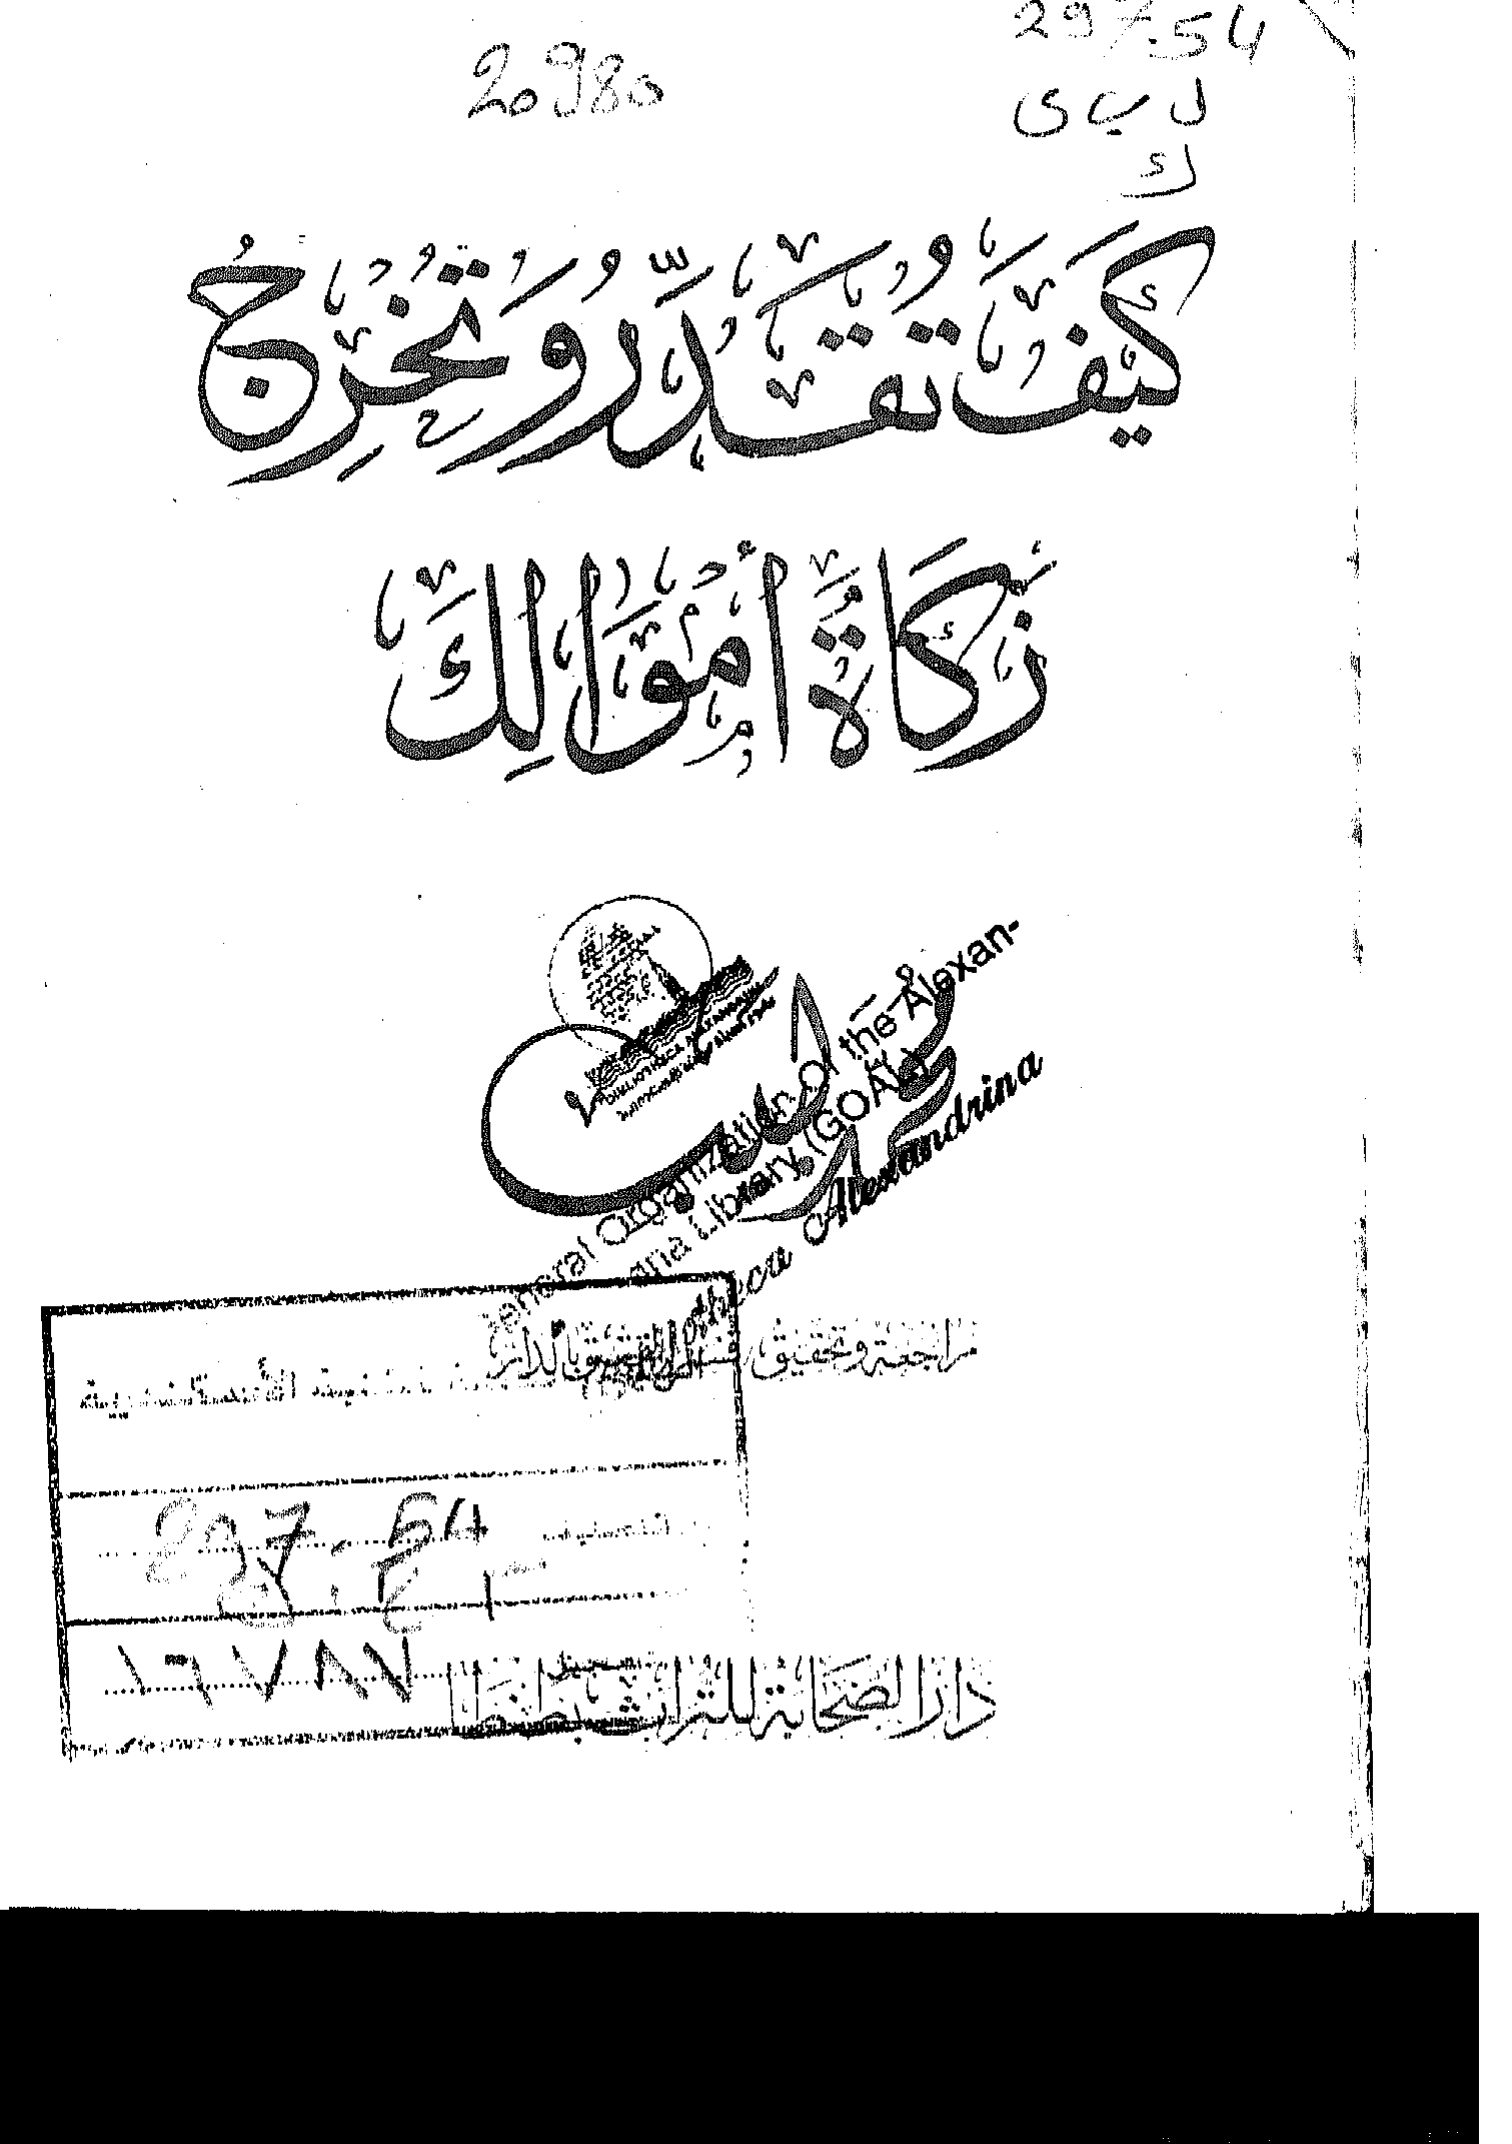 297.54
20980
ل ب ى
ك
كَيْفَ تُقَدِّرُ وَتُخْرِجُ
زَكَاةَ أَمْوَالِكَ
BIBLIOTHECA ALEXANDRINA
محمد
General Organization Of the Alexan-
dria Library (GOAL)
Bibliotheca Alexandrina
مراجعة وتحقيق قسم التحقيق بالدار
الأسكندرية
297.54
١٦٧٨٧
دار الصحابة للتراث بطنطا